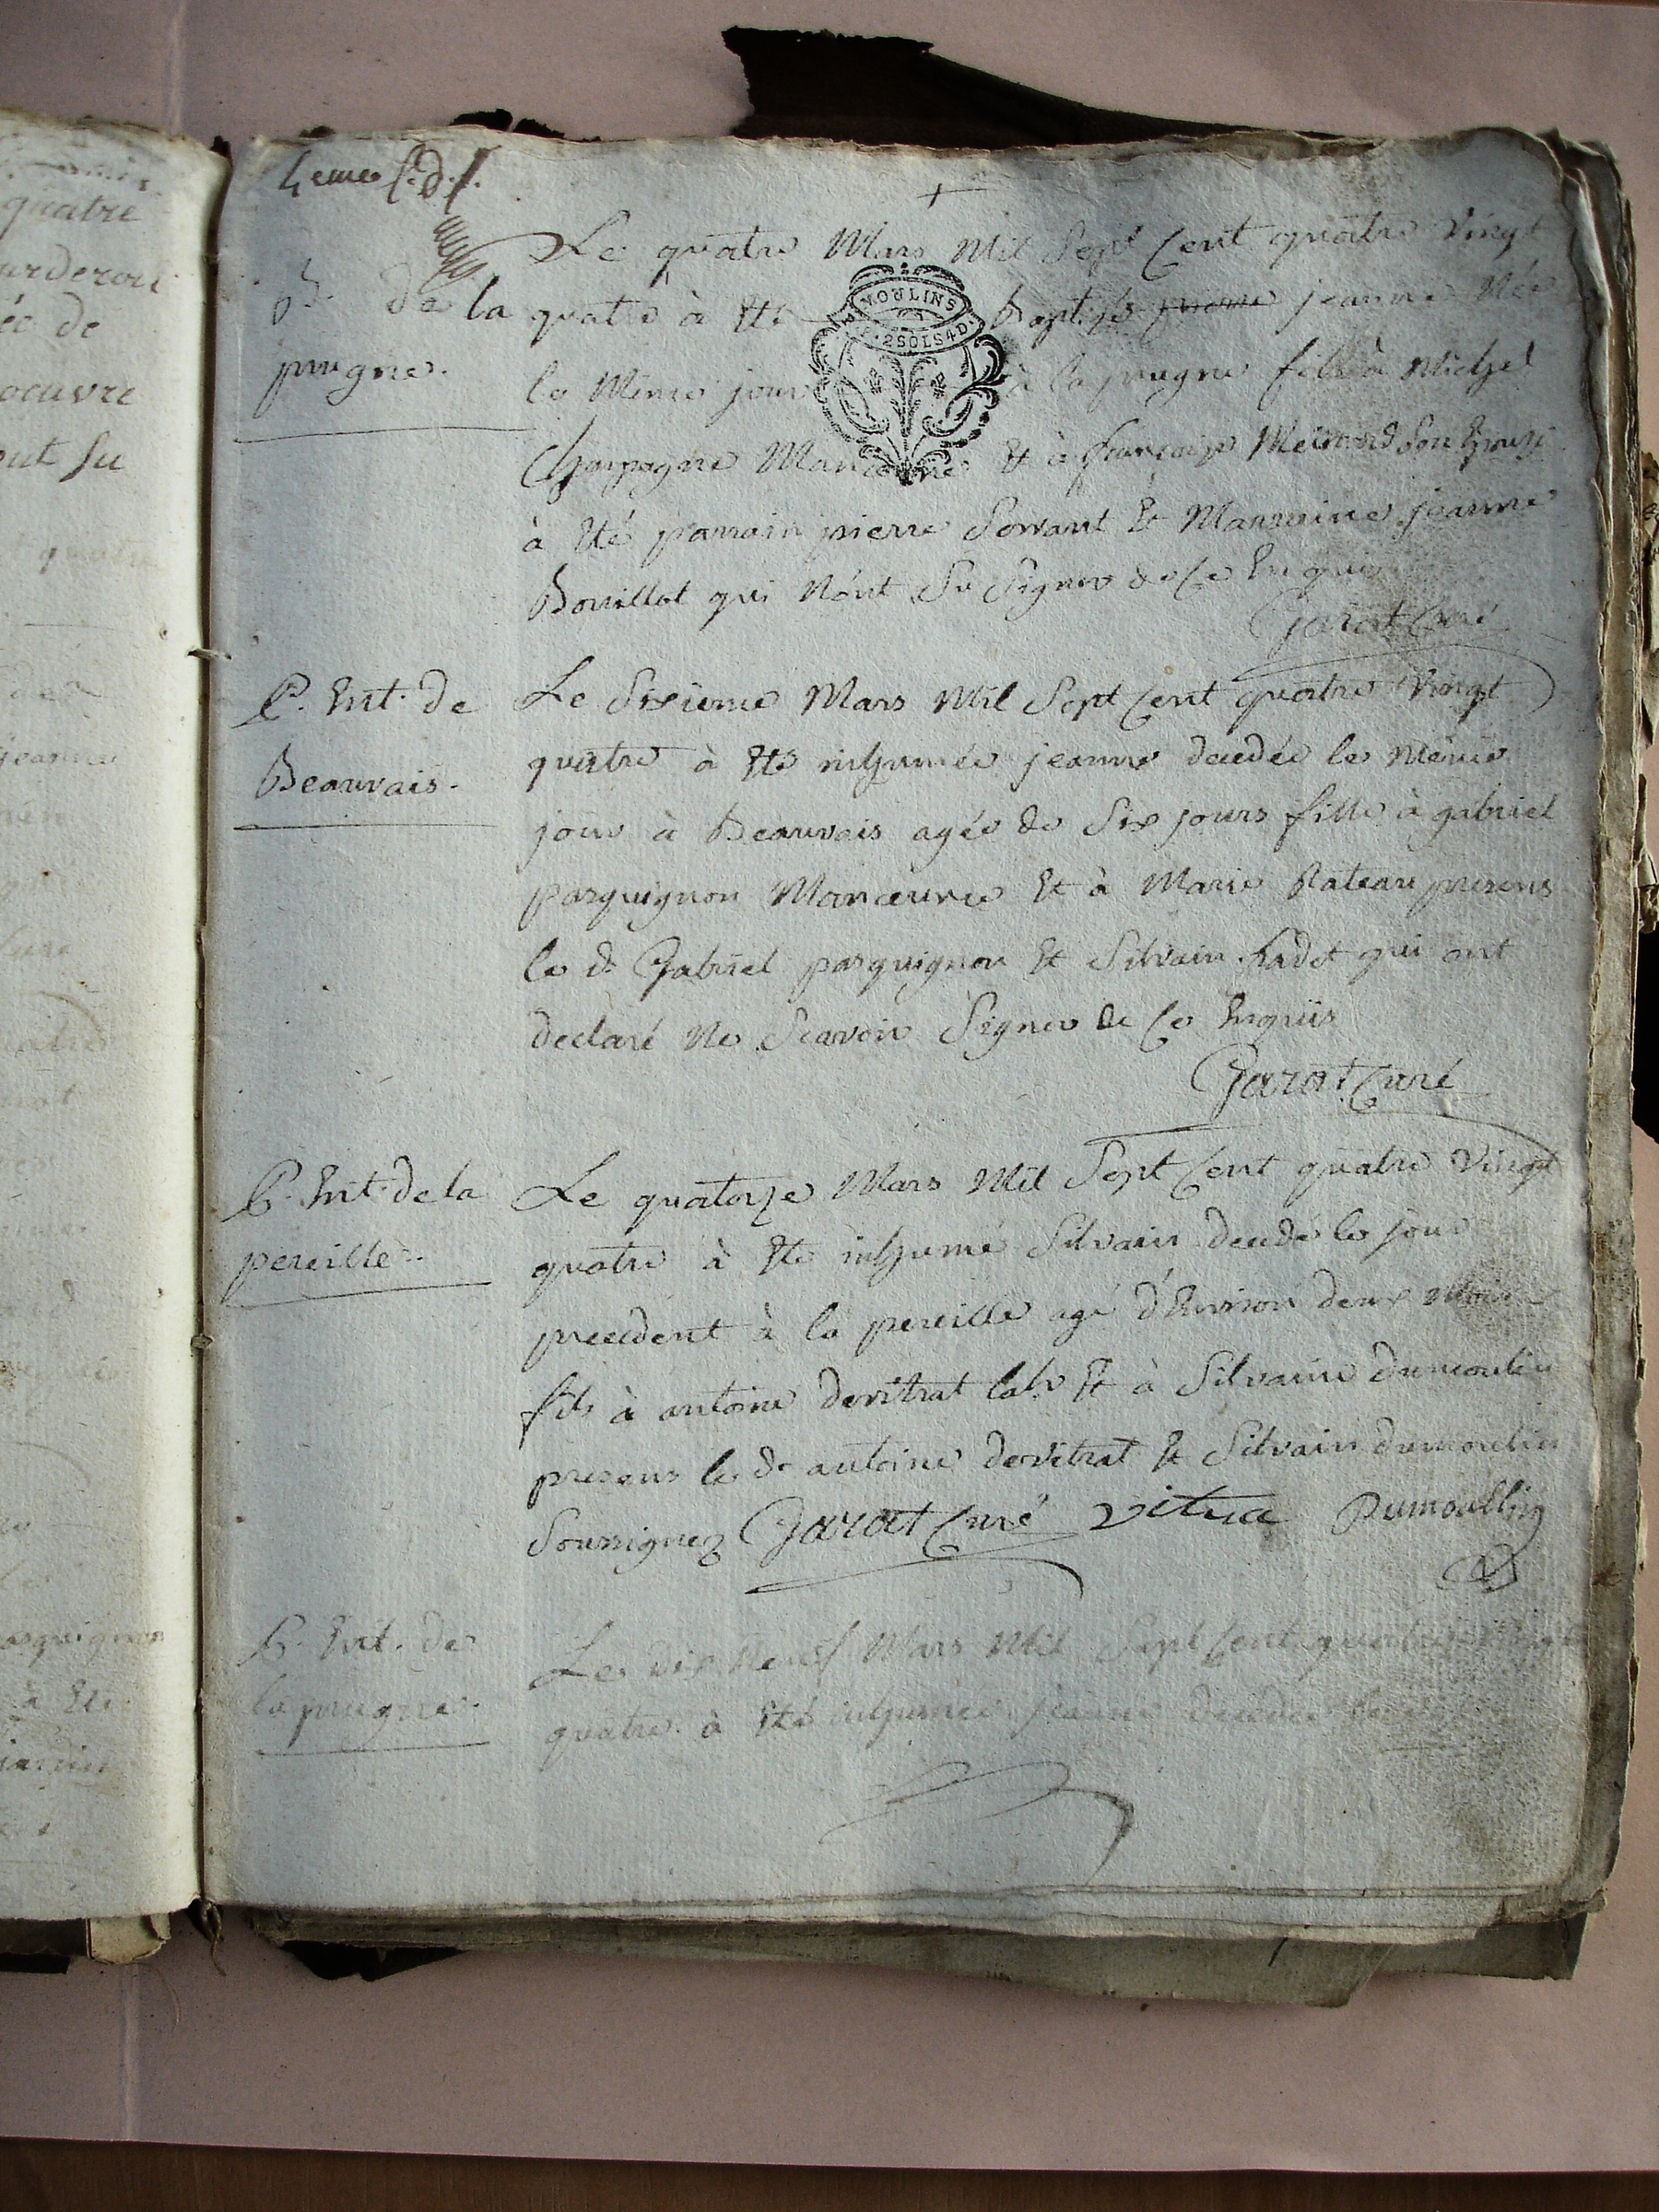 quatre
ée de
oeuvre
out su
4eme
Le quatre Mars Mil Sept Cent quatre Vingt
B. de la
prugne.
quatre à Eté Baptisée pierre jeanne Née
MOULINS
2SOLS4D.
le Même jour à la prugne fille à Michel
Champagne Manoeuvre Et à françoise Meunard Son Epouse
à Eté parrain pierre Servant Et Marraine jeanne
Bouillot qui N'ont Su Signer de Ce Enquis
Garat Curé
P. Ent. de
Beauvais.
Le Sixieme Mars Mil Sept Cent quatre Vingt
quatre à Eté inhumée jeanne decedée le Même
jour à Beauvais agée de Six jours fille à gabriel
pasquignon Manoeuvre Et à Marie Rateau presens
le d. Gabriel pasquignon Et Silvain Cadet qui ont
declaré Ne Scavoir Signer de Ce Enquis
Garat Curé
P. Ent. de la
pereille.
Le quatorze Mars Mil Sept Cent quatre Vingt
quatre à Eté inhumé Silvain decedé le jour
precedent à la pereille agé d'Environ deux Mois
fils à antoine devitrat labr Et à Silvaine dumoulin
presens le d. antoine devitrat Et Silvain dumoulin
Soussignez Garat Curé vitua Dumoullin
P. Ent. de
la prugne.
Le dix Neuf Mars Mil Sept Cent quatre Vingt
quatre à Eté inhumée jeanne decedée